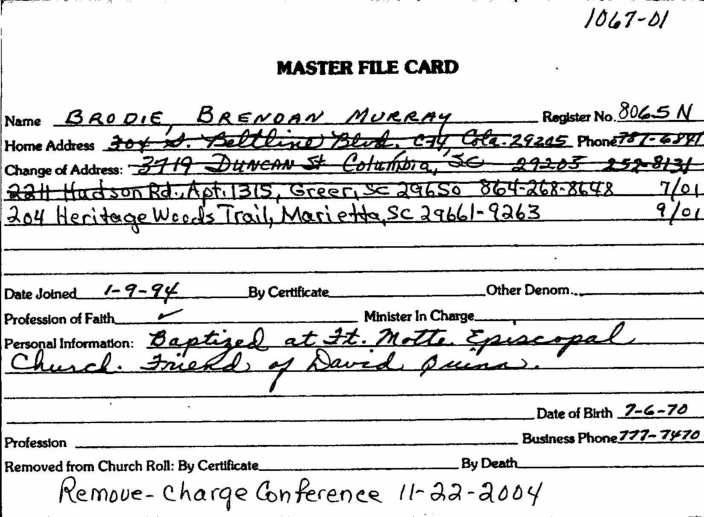 1067-01
MASTER FILE CARD
Name BRODIE, BRENDAN MURRAY Register No. 8065 N
Home Address 304 S. Beltline Blvd. C74, Cola. 29205 Phone 787-6841
Change of Address: 3719 DUNCAN St Columbia, SC 29205 252-8131
2211 Hudson Rd., Apt. 1315, Greer, SC 29650 864-268-8648 7/01
204 Heritage Woods Trail, Marietta, SC 29661-9263 9/01
Date Joined 1-9-94 By Certificate Other Denom.
Profession of Faith ✓ Minister In Charge
Personal Information: Baptized at Ft. Motte Episcopal
Church. Friend of David Quinn.
Date of Birth 7-6-70
Profession Business Phone 777-7470
Removed from Church Roll: By Certificate By Death
Remove - Charge Conference 11-22-2004